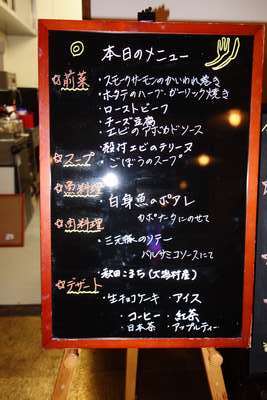 本日のメニュー
前菜
・スモークサーモンのかいわれ巻き
・ホタテのハーブ・ガーリック焼き
・ローストビーフ
・チーズ豆腐
・エビのアボカドソース
・殻付エビのテリーヌ
スープ
・ごぼうのスープ
魚料理
・白身魚のポアレ
カポナータにのせて
肉料理
・三元豚のソテー
バルサミコソースにて
・秋田こまち(大潟村産)
デザート
・生チョコケーキ・アイス
・コーヒー・紅茶
・日本茶・アップルティー